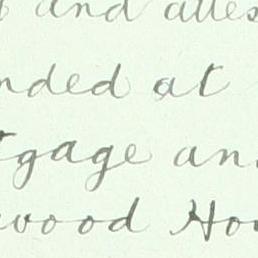 and attes
nded at
tgage an
wood Ho